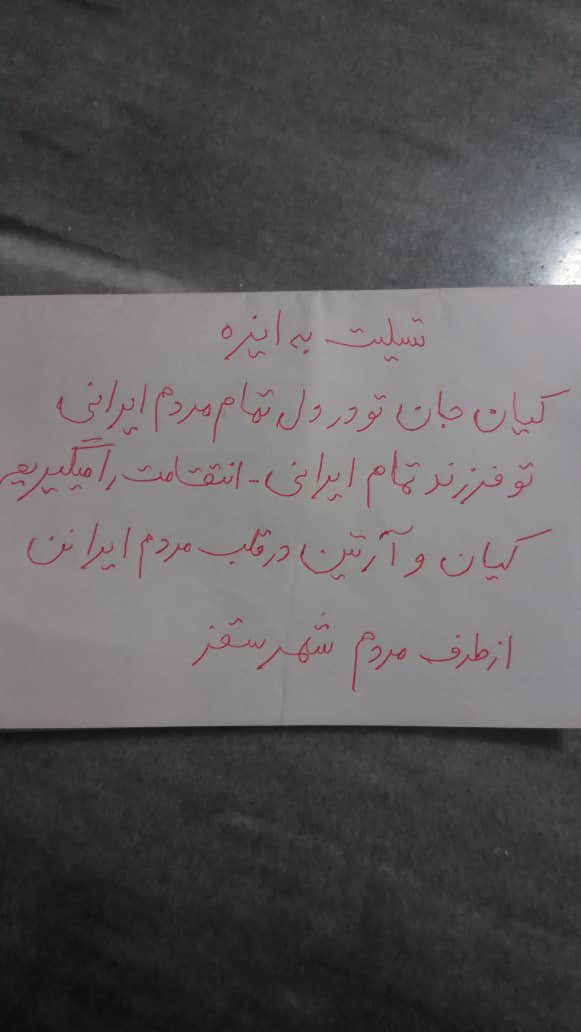 تسلیت به ایزه
کیان جان تو در دل تمام مردم ایرانی
تو فرزند تمام ایرانی - انتقامت را میگیریم
کیان و آرتین در قلب مردم ایرانن
از طرف مردم شهر سقز